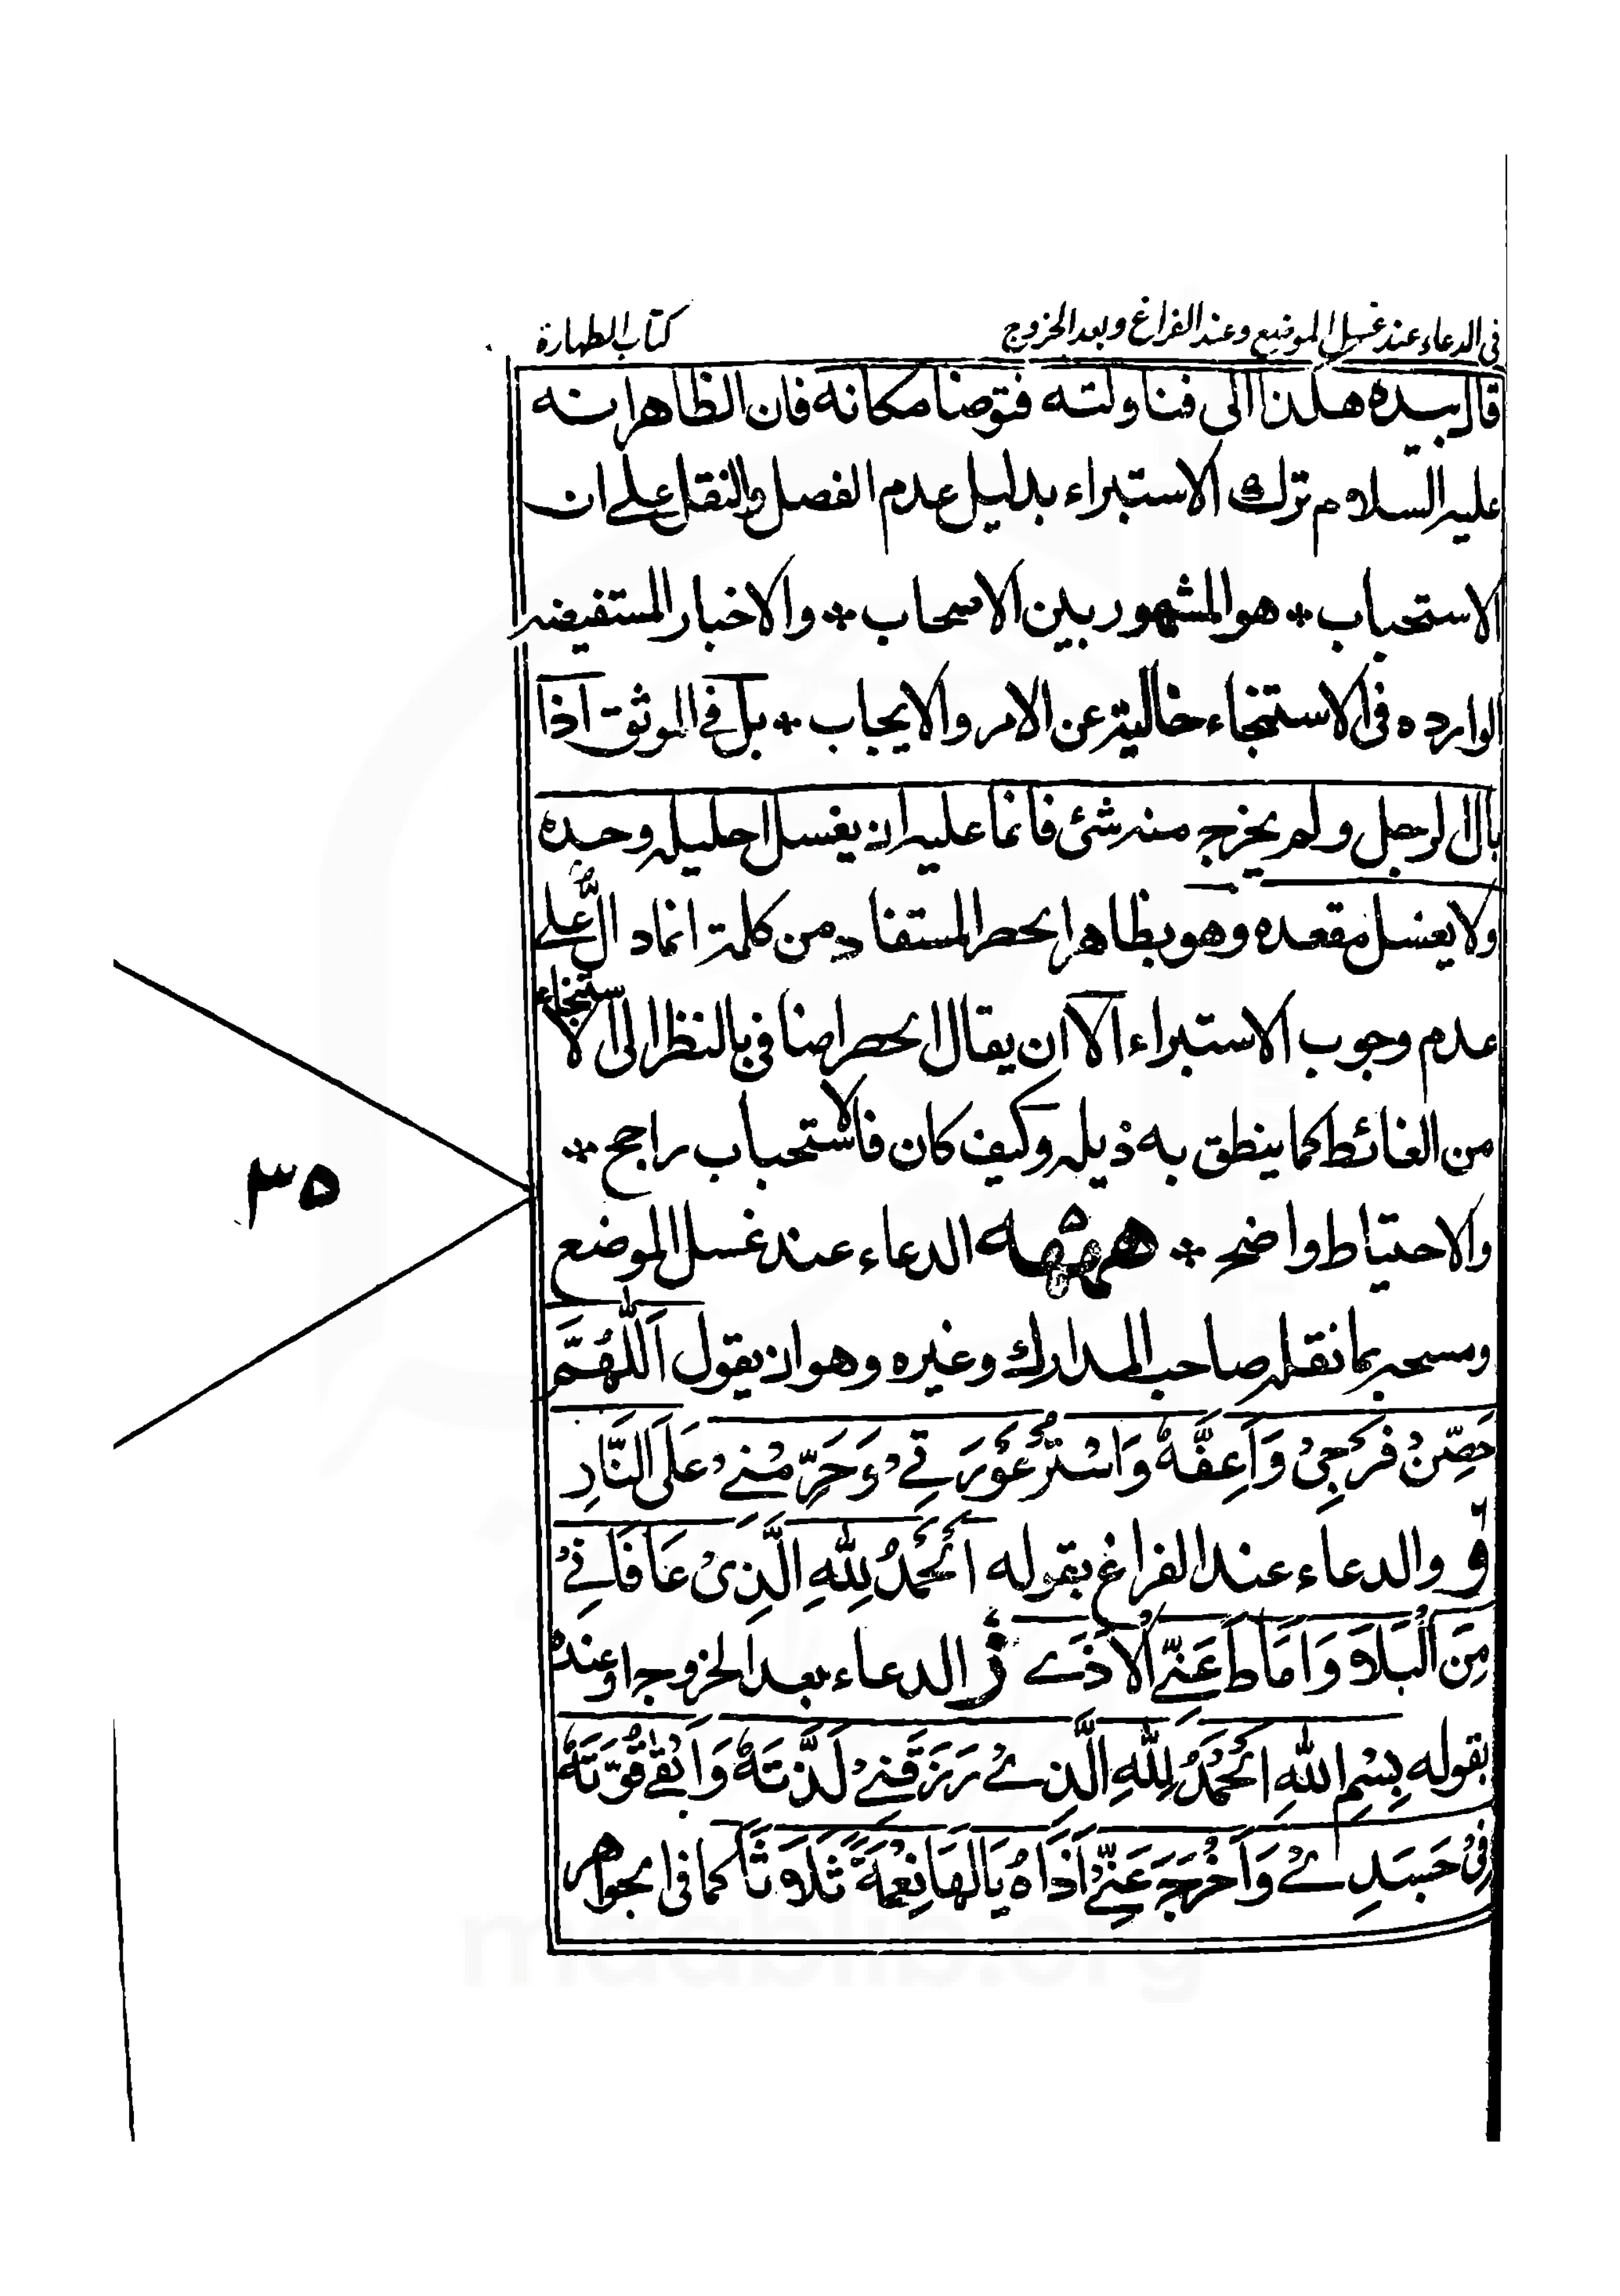 في الدعاء عند غسل الموضع وعند الفراغ وبعد الخروج كتاب الطهارة
قال بيده هكذا الى فناولته فتوضا مكانه فان الظاهر انه
عليه السلام ترك الاستبراء بدليل عدم الفصل والنقل على ان
الاستحباب * هو المشهور بين الاصحاب * والاخبار المستفيضه
الوارده في الاستنجاء خالية عن الامر والايجاب * بل في الموثق اذا
بال الرجل ولم يخرج منه شئ فانما عليه ان يغسل احليله وحده
ولا يغسل مقعده وهو بظاهر الحصر المستفاد من كلمة انما دالٌّ على
عدم وجوب الاستبراء الا ان يقال الحصر اضافي بالنظر الى الاستنجاء
من الغائط كما ينطق به ذيله وكيف كان فالاستحباب راجح *
والاحتياط واضح * الدعاء عند غسل الموضع
ومسحه بما نقله صاحب المدارك وغيره وهو ان يقول اَللّٰهُمَّ
حَصِّنْ فَرْجِىْ وَاَعِفَّهُ وَاسْتُرْ عَوْرَتِىْ وَحَرِّمْنِىْ عَلَى النَّارِ
والدعاء عند الفراغ بقوله اَلْحَمْدُ لِلّٰهِ الَّذِىْ عَافَانِىْ
مِنَ الْبَلَاءِ وَاَمَاطَ عَنِّى الْاَذَى الدعاء بعد الخروج او عنده
بقوله بِسْمِ اللّٰهِ اَلْحَمْدُ لِلّٰهِ الَّذِىْ رَزَقَنِىْ لَذَّتَهُ وَاَبْقٰى قُوَّتَهُ
فِىْ جَسَدِىْ وَاَخْرَجَ عَنِّىْ اَذَاهُ يَا لَهَا نِعْمَةً ثَلَاثًا كما في الجواهر
٣٥
maablib.org